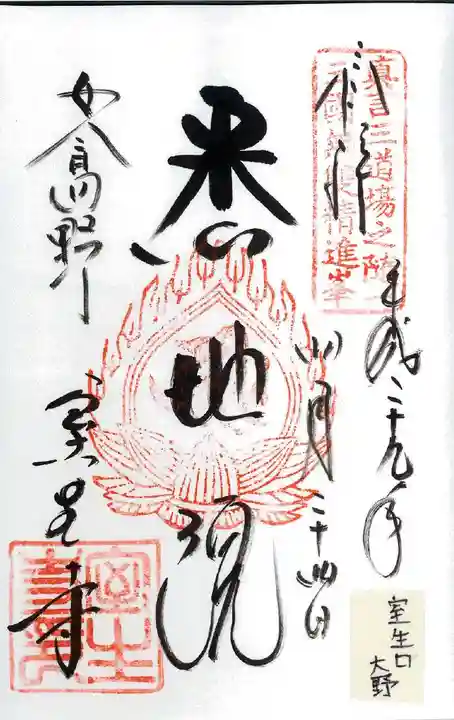 真言三道場之随一
奉拝
平成二十九年
四月二十四日
悉地院
女人高野
室生寺
室生口
大野